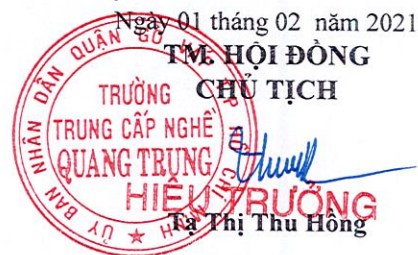 Ngày 01 tháng 02 năm 2021
TM. HỘI ĐỒNG
CHỦ TỊCH
ỦY BAN NHÂN DÂN QUẬN GÒ
TRƯỜNG
TRUNG CẤP NGHỀ
QUANG TRUNG
HIỆU TRƯỞNG
Tạ Thị Thu Hồng